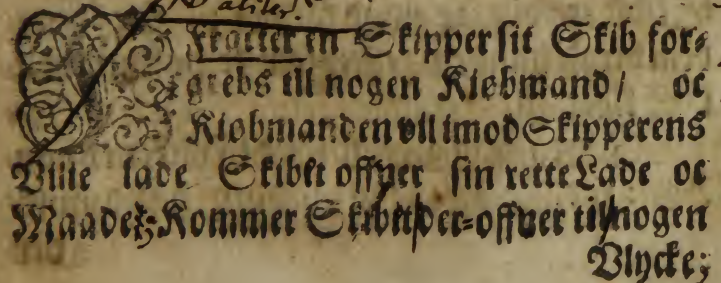 aliter.
Fracter en Skipper sit Skib for⸗
grebs til nogen Kiøbmand / oc
Kiøbmanden vil imod Skipperens
Villie lade Skibet offuer sin rette Lade oc
Maade; Kommer Skibet der⸗offuer til nogen
Vlycke;